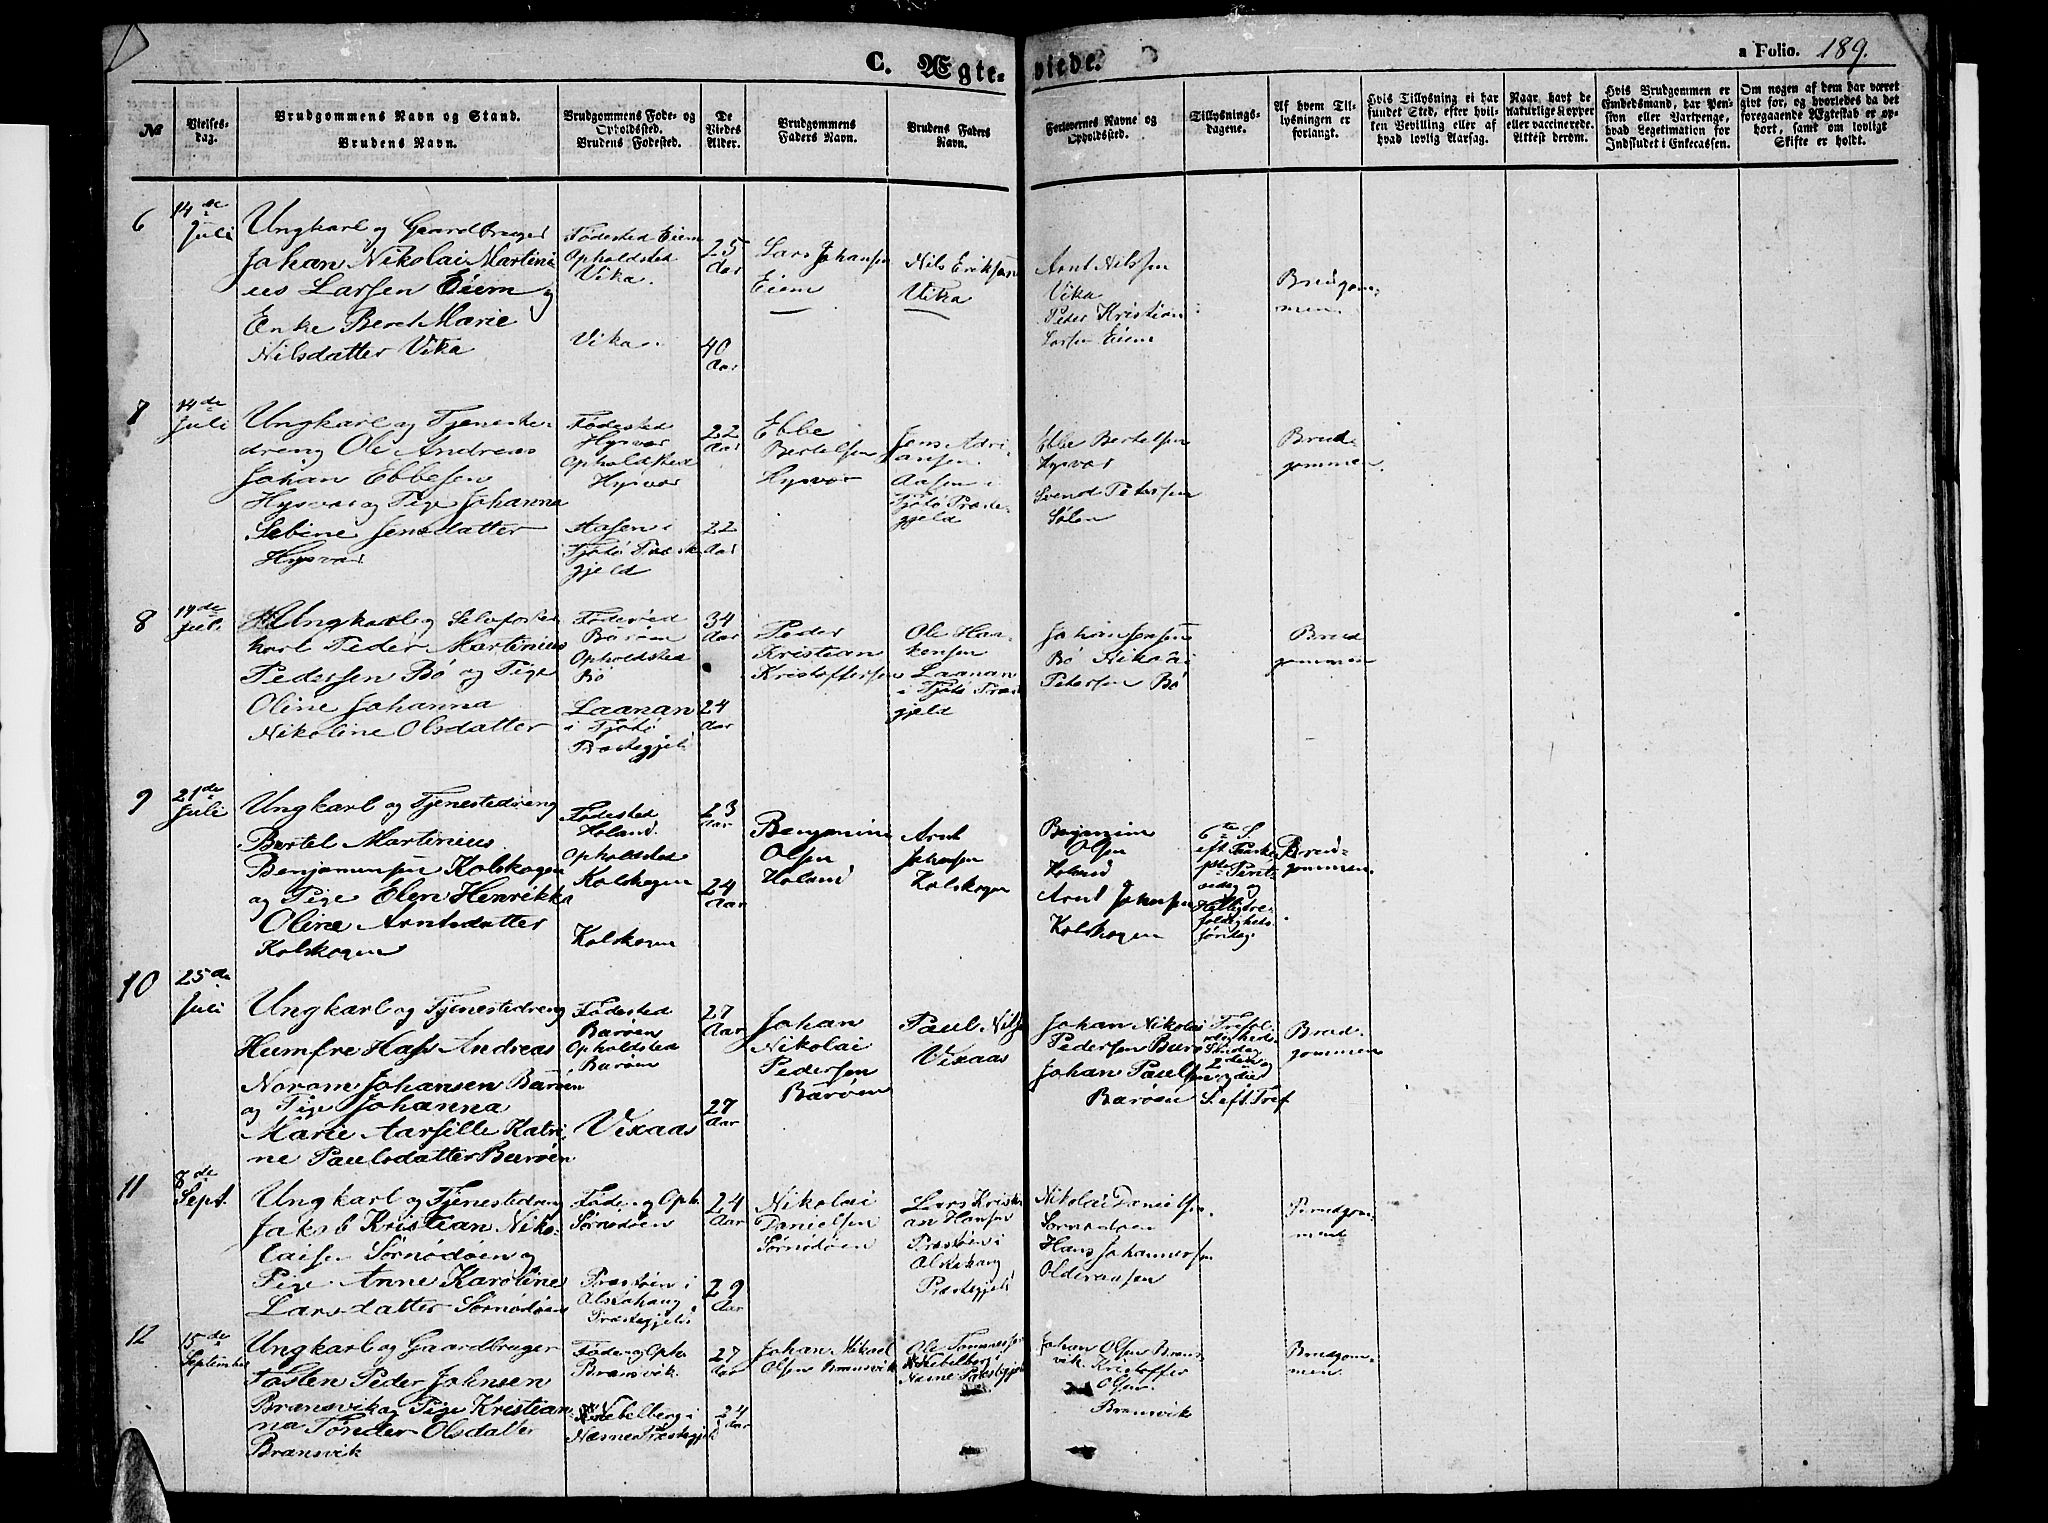 C. Ægte-viede.
a Folio. 189.
№
Vielses-
dag.
Brudgommens Navn og Stand.
Brudens Navn.
Brudgommens Føde- og
Opholdssted.
Brudens Fødested.
De
Viedes
Alder.
Brudgommens
Faders Navn.
Brudens Faders
Navn.
Forlovernes Navne og
Opholdssted.
Tillysnings-
dagene.
Af hvem Til-
lysningen er
forlangt.
Hvis Tillysning ei har
fundet Sted, efter hvil-
ken Bevilling eller af
hvad lovlig Aarsag.
Naar havt de
naturlige Kopper
eller vaccinerede.
Attest derom.
Hvis Brudgommen er
Embedsmand, har Pen-
sion eller Vartpenge,
hvad Legetimation for
Indskudet i Enkecassen.
Om nogen af dem har været
givt for, og hvorledes da det
foregaaende Ægteskab er op-
hørt, samt om lovligt
Skifte er holdt.
6
14de
Juli
Ungkarl og Gaardbruger
Johan Nikolai Martini
us Larsen Eiem og
Enke Beret Marie
Nilsdatter Vika
Fødested Eiem
Opholdsted
Vika.
Vika.
25
Aar
40
Aar
Lars Johansen
Eiem
Nils Eriksen
Vika
Arnt Nilssen
Vika
Peder Kristian
Larsen Eiem
Brudgom-
men.
7
14de
Juli
Ungkarl og Tjeneste-
dreng Ole Andreas
Johan Ebbesen
Hysvær og Pige Johanna
Sebine Jensdatter
Hysvær
Fødested
Hysvær
Opholdsted
Hysvær
Aasen i
Tjøtø Præste
gjeld
22
Aar
22
Aar
Ebbe
Bertelsen
Hysvær
Jens Adri
ansen
Aasen i
Tjøtø Præste-
gjeld
Ebbe Bertelsen
Hysvær
Svend Petersen
Sølen
Brud-
gommen.
8
14de
Juli
Ungkarl og Selvfoster
karl Peder Martinius
Pedersen Bø og Pige
Oline Johanna
Nikoline Olsdatter
Fødested
Barøen
Opholdsted
Bø
Laanan
i Tjøtø
Præstegjeld
34
Aar
24
Aar
Peder
Kristian
Kristoffersen
Ole Haa-
kensen
Laanan
i Tjøtø Præste
gjeld
Johan Jensen
Bø Nikolai
Petersen Bø
Brud
gommen
9
21de
Juli
Ungkarl og Tjenestedreng
Bertel Martinius
Benjaminsen Kolskogen
og Pige Elen Henrikka
Oline Arntsdatter
Kolskogen
Fødested
Holand.
Opholdsted
Kolskogen
Kolskogen
23
Aar
24
Aar
Benjamin
Olsen
Holand
Arnt
Johansen
Kolskogen
Benjamin
Olsen
Holand
Arnt Johansen
Kolskogen
6te S.
eft. Paaske
1ste Pint-
sedag og
Helligtre-
foldigheds
søndag.
Brud-
gommen.
10
25de
Juli
Ungkarl og Tjenestedreng
Humfre Hass Andreas
Norom Johansen Barøen
og Pige Johanna
Marie Aarsille Katri
ne Paulsdatter Barøen
Fødested
Barøen
Opholdsted
Barøen
Vixaas
27
Aar
27
Aar
Johan
Nikolai
Pedersen
Barøen
Paul Nils
Vixaas
Johan Nikolai
Pedersen Barø
Johan Paulsen
Barøen
Trefol-
digheds
Søndag
2den og
3die
S. eft. Tref
Brud-
gommen
11
8de
Sept.
Ungkarl og Tjenestedreng
Jakob Kristian Niko-
laisen Sørnødøen og
Pige Anne Karoline
Larsdatter Sørnødøen
Føde og Oph.
Sørnødøen
Præstøen i
Alstahaug
Præstegjeld
24
Aar
29
Aar
Nikolai
Danielsen
Sørnødøen
Lars Kristi
an Hansen
Præstøen i
Alstahaug
Præstegjeld
Nikolai Danielsen
Sørnødøen
Hans Johannessen
Brudgom-
men
12
15de
September
Ungkarl og Gaardbruger
Fosten Peder Johnsen
Brænsvik og Pige Kristian
na Tønder Olsdatter
Brænsvik
Føde og Oph.
Brænsvik.
Næbelberg i
Næsne Præstegjeld
27
Aar
24
Aar
Johan Mikael
Olsen Brænsvik
Ole Tommessen
Næbelberg i
Næsne Præstegjeld
Johan Olsen Bræns-
vik
Kristoffer
Olsen
Brænsvik
Brudgom-
men.